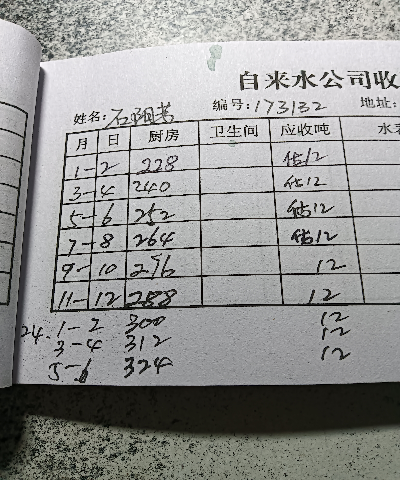 自来水公司收
姓名: 石阳芳 编号: 173132 地址:
月 日 厨房 卫生间 应收吨 水表
1-2 228 估12
3-4 240 估12
5-6 252 估12
7-8 264 估12
9-10 276 12
11-12 288 12
24. 1-2 300 12
3-4 312 12
5-6 324 12